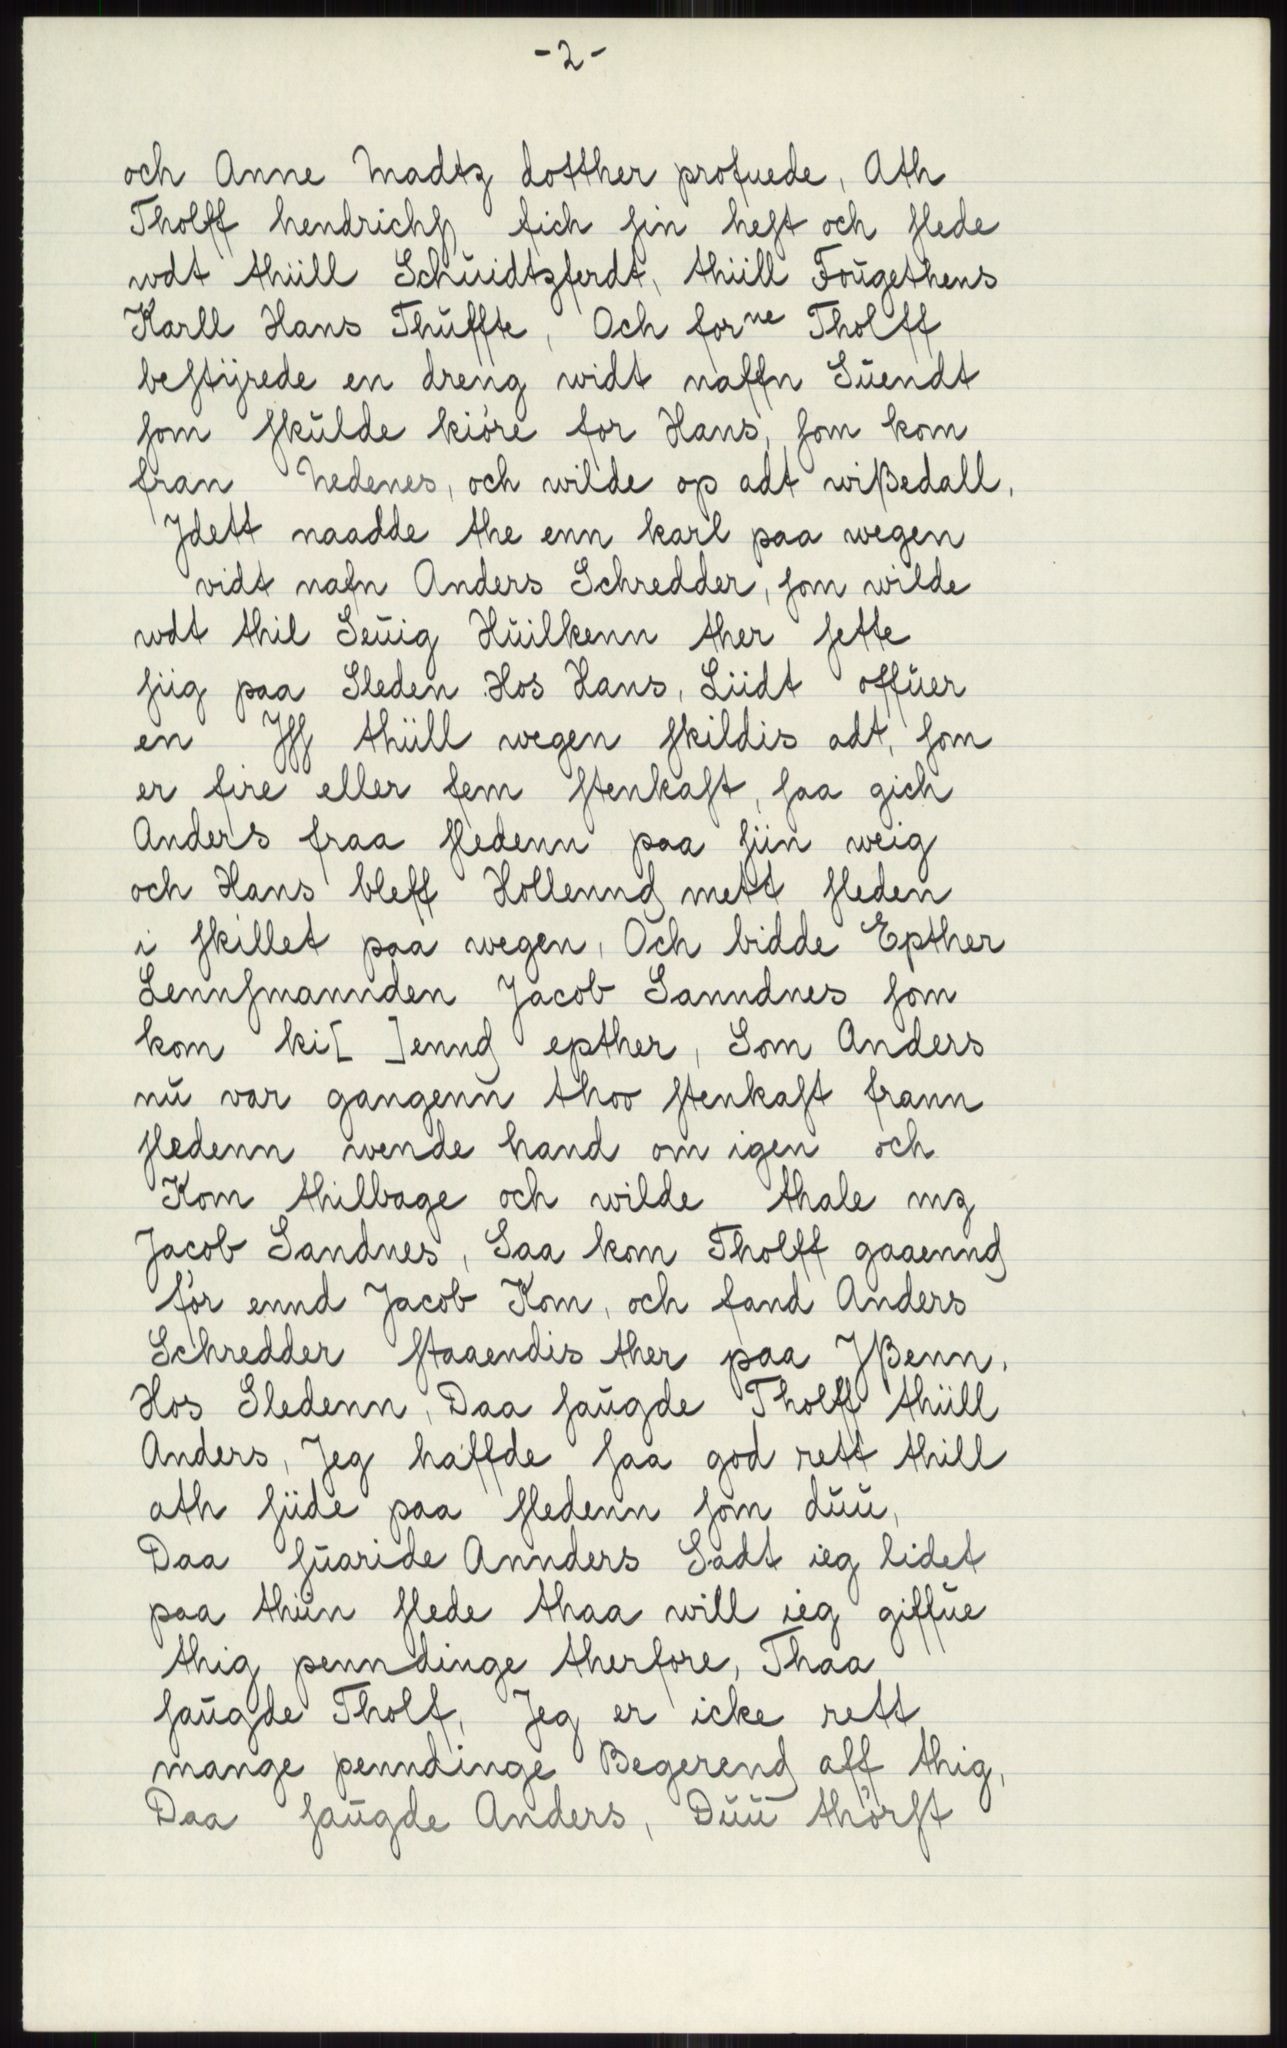 -2-
och Anne Madtz dotther profuede, Ath
Tholff hendrichſſ fich ſin heſt och ſlede
wdt thüll Schuidtzferdt, thüll Foŭgethens
Karll Hans Thŭffte, Och forⁿᵉ Tholff
beſtÿrede en dreng widt naffn Sŭendt
ſom ſkŭlde kiöre for Hans, ſom kom
fran Nedenes, och wilde op adt wißedall,
Jdett naadde the enn karl paa wegen
vidt nafn Anders Schredder, ſom wilde
wdt thil Seŭig Hŭilkenn ther ſette
ſiig paa Sleden Hos Hans, Liidt offŭer
en Jſſ thüll wegen ſkildis adt, ſom
er fire eller fem ſtenkaſt, ſaa gich
Anders fraa ſledenn paa ſiin weig
och Hans bleff Hollennd mett ſleden
i ſkillet paa wegen, Och bidde Epther
Lennſmannden Jacob Sanndnes ſom
kom ki[ ]ennd epther, Som Anders
nŭ var gangenn thoo ſtenkaſt frann
ſledenn wende hand om igen och
Kom thilbage och wilde thale mz
Jacob Sandnes, Saa kom Tholff gaaennd
för ennd Jacob Kom, och fand Anders
Schredder ſtaaendis ther paa Jßenn,
Hos Sledenn, Daa ſaŭgde Tholff thüll
Anders, Jeg haffde ſaa god rett thill
ath ſiide paa ſledenn ſom dŭŭ,
Daa ſŭaride Annders Sadt ieg lidet
paa thiin ſlede thaa will ieg giffŭe
thig penndinge therfore, Thaa
ſaŭgde Tholf, Jeg er icke rett
mange penndinge Begerend aff thig,
Daa ſaŭgde Anders, Dŭŭ thörſt